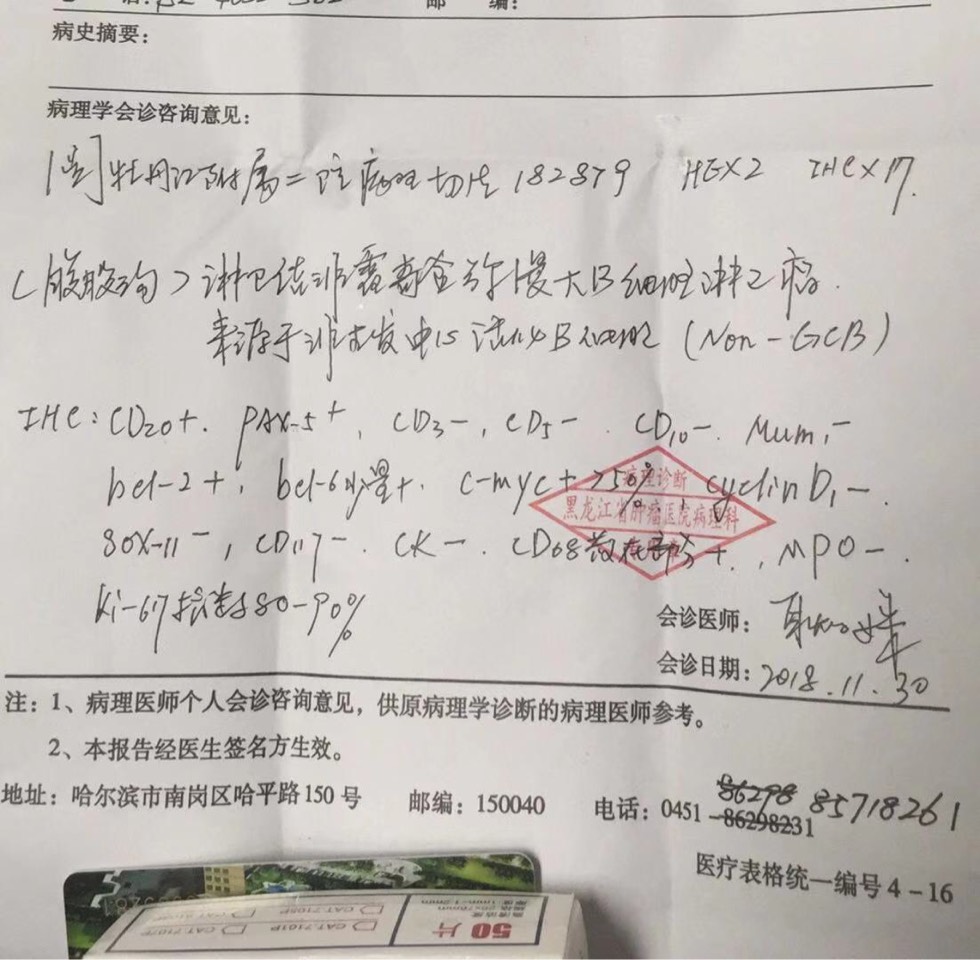 邮 编：
病史摘要：
病理学会诊咨询意见：
[阅]牡丹江附属二院病理切片182879 HE×2 IHC×17.
(腹股沟)淋巴结非霍奇金弥漫大B细胞淋巴瘤.
来源于非生发中心活化B细胞 (Non-GCB)
IHC: CD20+. PAX-5+, CD3-, CD5-. CD10-. Mum1-
bcl-2+, bcl-6少量+. c-myc+>50%, cyclin D1-.
SOX-11-, CD117-. CK-. CD68散在部分+., MPO-.
Ki-67指数80-90%
病理诊断
黑龙江省肿瘤医院病理科
会诊医师：
会诊日期：2018.11.30
注：1、病理医师个人会诊咨询意见，供原病理学诊断的病理医师参考。
2、本报告经医生签名方生效。
地址：哈尔滨市南岗区哈平路150号 邮编：150040 电话：0451-86298231 86298 85718261
医疗表格统一编号4-16
50片
CAT.7101P
CAT.7105P